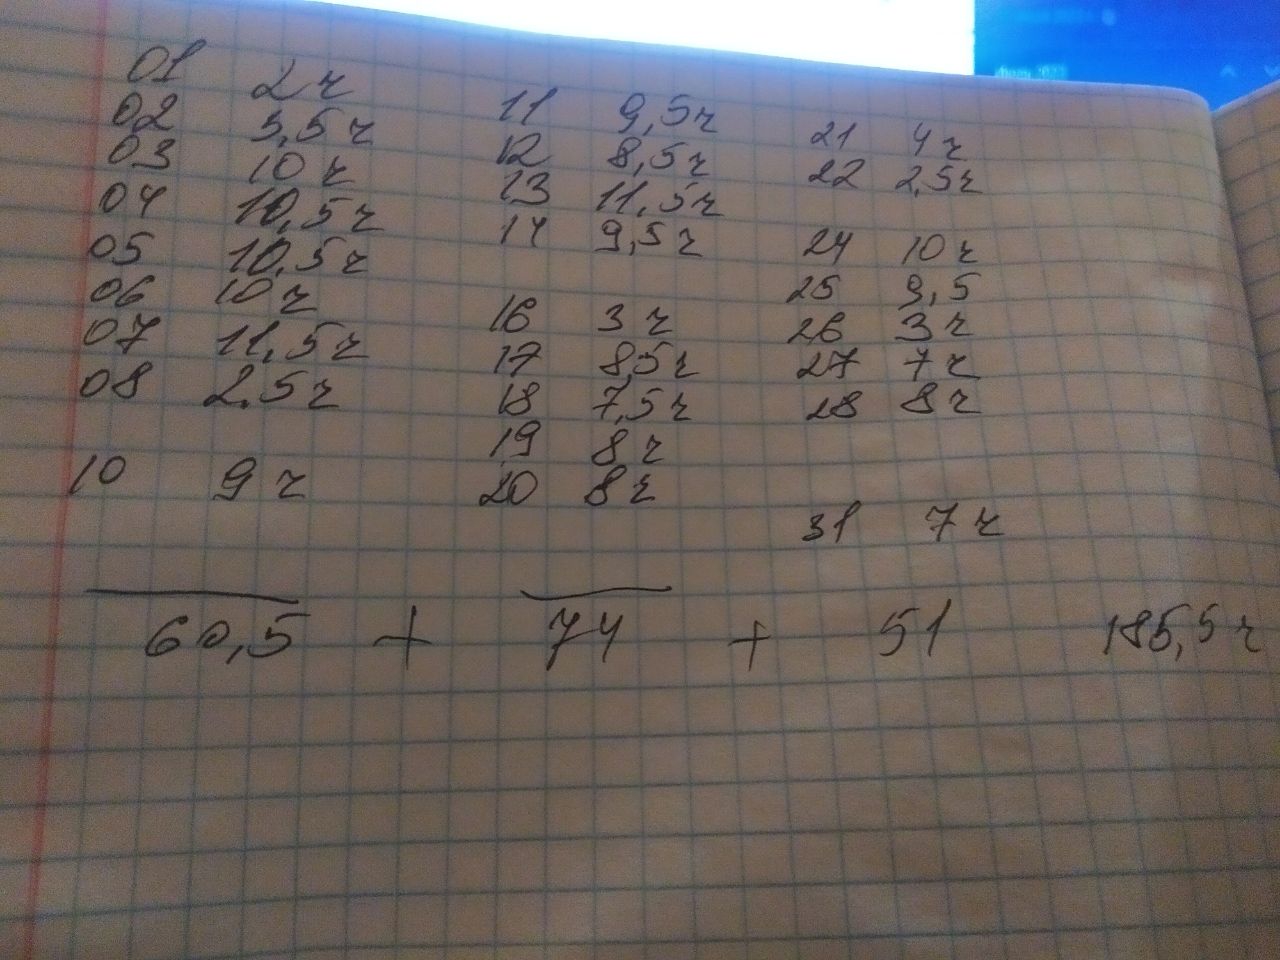 01 2 ч
02 3,5 ч
03 10 ч
04 10,5 ч
05 10,5 ч
06 10 ч
07 11,5 ч
08 2.5 ч
10 9 ч
11 9,5 ч
12 8,5 ч
13 11,5 ч
14 9,5 ч
16 3 ч
17 8,5 ч
18 7,5 ч
19 8 ч
20 8 ч
21 4 ч
22 2,5 ч
24 10 ч
25 9,5
26 3 ч
27 7 ч
28 8 ч
31 7 ч
60,5 + 74 + 51 185,5 ч